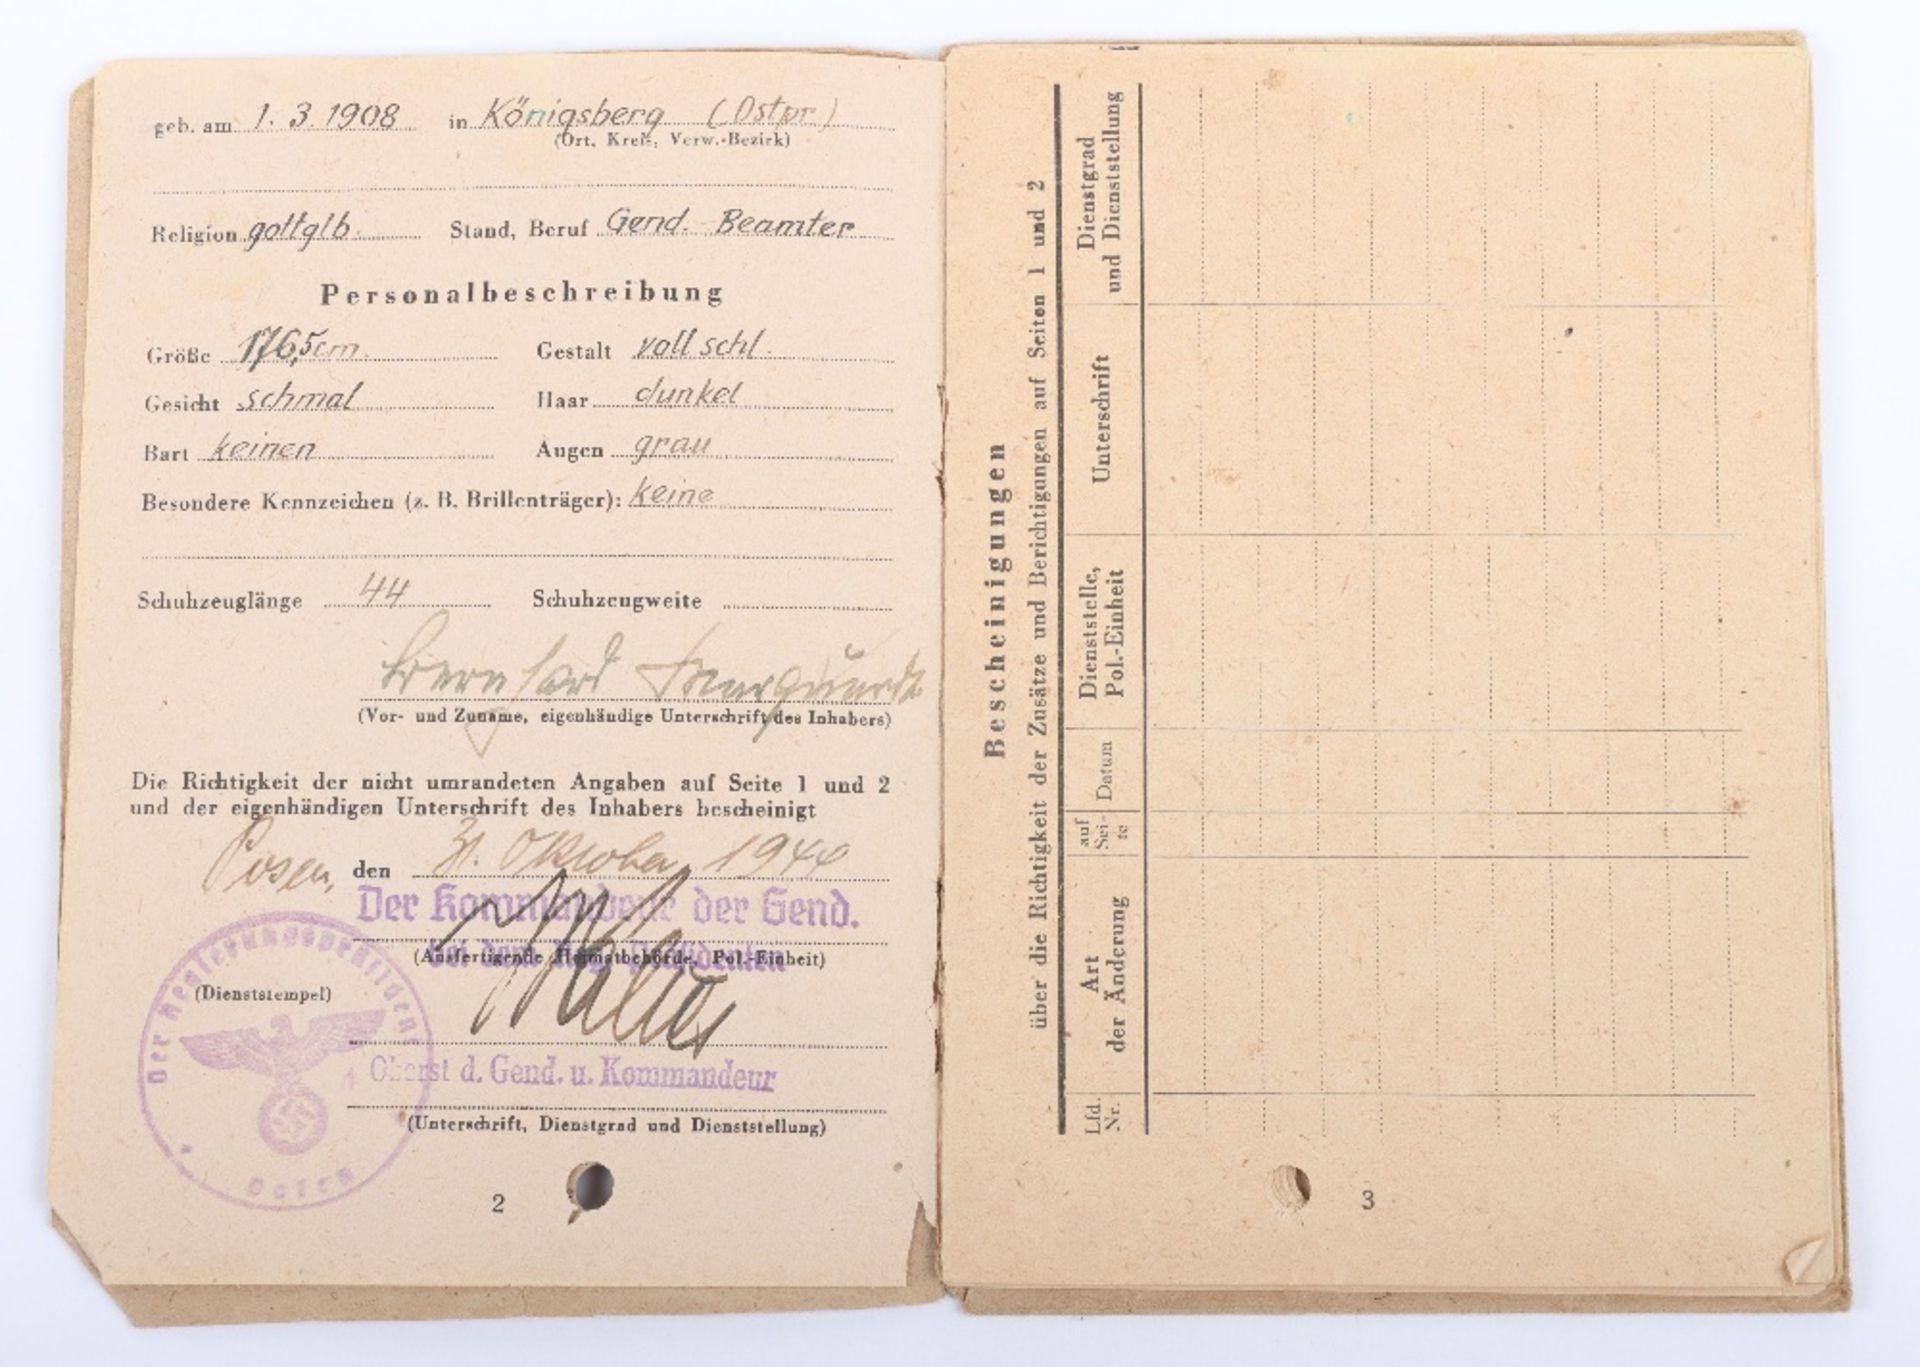 geb. am 1. 3. 1908 in Königsberg (Ostpr)
(Ort, Kreis, Verw.-Bezirk)
Religion gottglb. Stand, Beruf Gend. Beamter
Personalbeschreibung
Größe 176,5cm. Gestalt voll schl.
Gesicht schmal Haar dunkel
Bart keinen Augen grau
Besondere Kennzeichen (z. B. Brillenträger): keine
Schuhzeuglänge 44 Schuhzeugweite
Bernhard Marquardt
(Vor- und Zuname, eigenhändige Unterschrift des Inhabers)
Die Richtigkeit der nicht umrandeten Angaben auf Seite 1 und 2
und der eigenhändigen Unterschrift des Inhabers bescheinigt
Posen, den 31. Oktober 1944
Der Kommandeur der Gend.
bei dem Reg. Präsidenten
(Ausfertigende Heimatbehörde, Pol.-Einheit)
(Dienststempel)
Der Regierungspräsident
Posen
Oberst d. Gend. u. Kommandeur
(Unterschrift, Dienstgrad und Dienststellung)
2
Bescheinigungen
über die Richtigkeit der Zusätze und Berichtigungen auf Seiten 1 und 2
Lfd. Nr.
Art der Änderung
auf Sei- te
Datum
Dienststelle, Pol.-Einheit
Unterschrift
Dienstgrad und Dienststellung
3